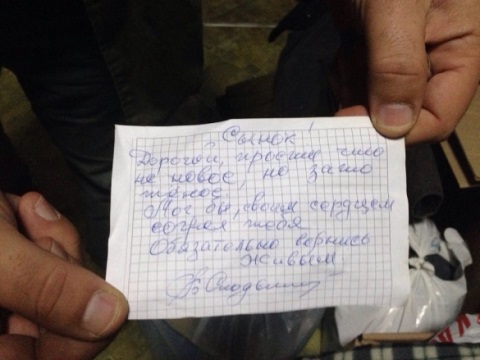 Сынок!
Дорогой, прости что
не новое, но зато
тёплое
Мог бы, своим сердцем
согрел тебя
Обязательно вернись
живым